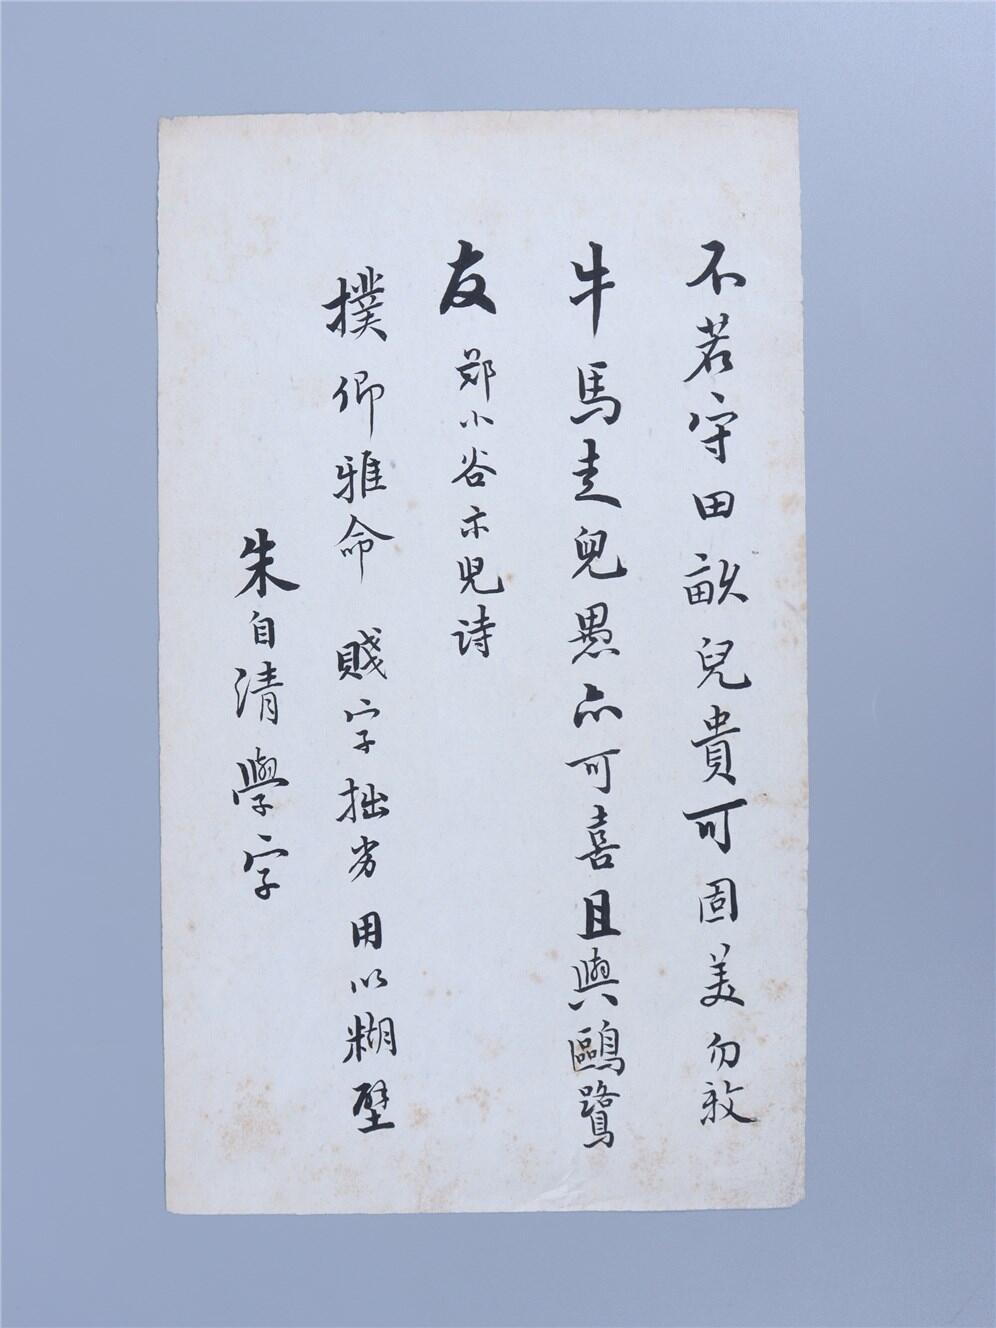 不若守田畝兒貴可固美勿教
牛馬走兒愚亦可喜且與鷗鷺
友 鄭小谷示兒詩
撲仰雅命 賤字拙劣用以糊壁
朱自清學字